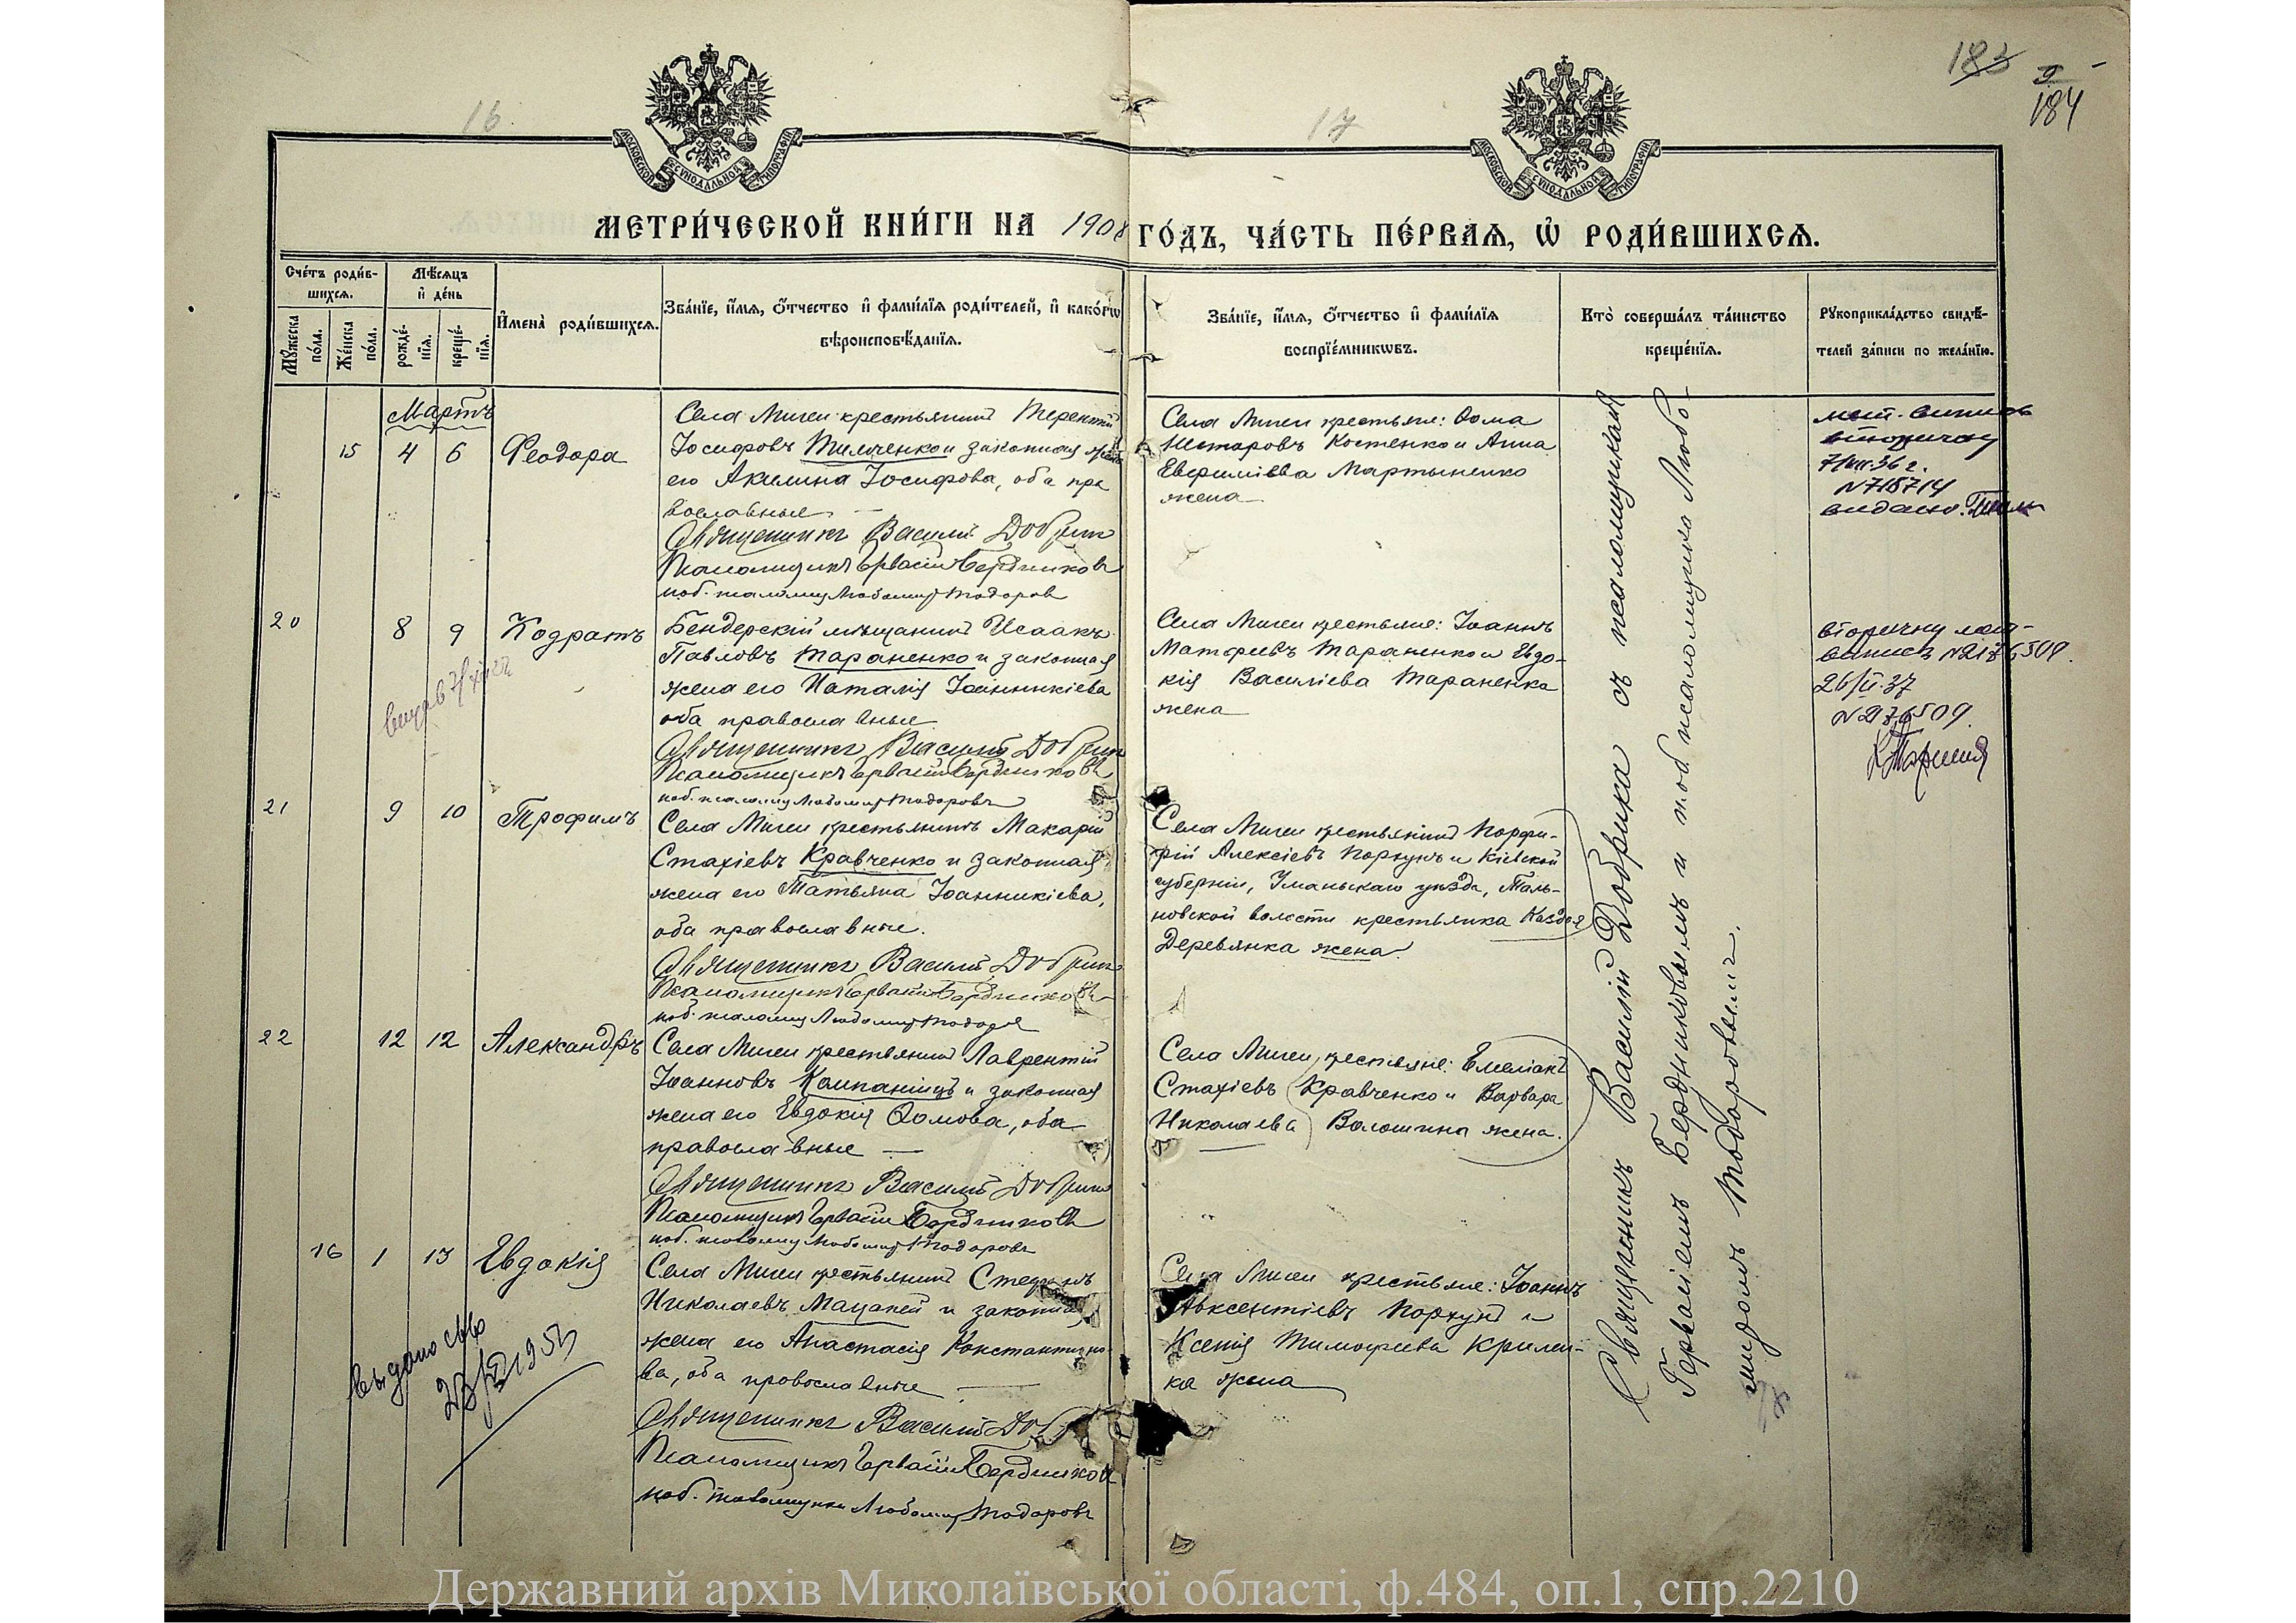 16
17
183
9
184
МОСКОВСКОЙ СѴНОДАЛЬНОЙ ТИПОГРАФІИ
МОСКОВСКОЙ СѴНОДАЛЬНОЙ ТИПОГРАФІИ
МЕТРИ́ЧЕСКОЙ КНИ́ГИ НА 1908 ГО́ДЪ, ЧА́СТЬ ПЕ́РВАѦ, Ѡ҆ РОДИ́ВШИХСѦ.
Сче́тъ роди́в-
шихсѧ.
Мꙋ́жеска
по́ла.
Же́нска
по́ла.
Мѣ́сѧцъ
и҆ де́нь
рожде́-
нїѧ.
креще́-
нїѧ.
И҆мена̀ роди́вшихсѧ.
Зва́нїе, и҆́мѧ, ѻ҆́тчество и҆ фами́лїѧ роди́телей, и҆ како́гѡ
вѣроисповѣ́данїѧ.
Зва́нїе, и҆́мѧ, ѻ҆́тчество и҆ фами́лїѧ
воспрїе́мникѡвъ.
Кто̀ соверша́лъ та́инство
креще́нїѧ.
Рꙋкоприкла́дство свидѣ́-
телей за́писи по жела́нїю.
Мартъ
15 4 6 Феодора
Села Мигеи крестьянинъ Терентій
Іосифовъ Тимченко и законная жена
его Акилина Іосифова, оба пра
вославные
Священникъ Василій Добрик
Псаломщикъ Гервасій Бердников
поб. псаломщ Любомир Тодоров
Села Мигеи крестьяне: Ѳома
Несторовъ Костенко и Анна
Евфимівва Мартыненко
жена
вторичну
7/VII.36 г.
N 718714
видано.
20 8 9 Кодратъ
Бендерскій мѣщанинъ Исаакъ
Павловъ Тараненко и законная
жена его Наталія Іоанникіева
оба православные
Священникъ Василій Добрик
Псаломщикъ Гервасій Бердниковъ
поб. псаломщ Любомир Тодоровъ
Села Мигеи крестьяне: Іоаннъ
Матфеевъ Тараненко и Евдо-
кія Василіева Тараненка
жена
вторичну
випись N 2176509.
26/II.37
N 2176509
21 9 10 Трофимъ
Села Мигеи крестьянинъ Макарій
Стахіевъ Кравченко и законная
жена его Татьяна Іоанникіева,
оба православные.
Священникъ Василій Добрик
Псаломщикъ Гервасій Бердниковъ
поб. псаломщ Любомир Тодоров
Села Мигеи крестьянинъ Порфи-
рій Алексіевъ Порхунъ и Кіевской
губерніи, Уманьскаго уѣзда, Таль-
новской волости крестьянка
Деревянка жена
22 12 12 Александръ
Села Мигеи крестьянинъ Лаврентій
Іоанновъ Компаніецъ и законная
жена его Евдокія Ѳомова, оба
православные
Священникъ Василій Добрик
Псаломщикъ Гервасій Бердниковъ
поб. псаломщ Любомир Тодоровъ
Села Мигеи крестьяне: Емеліанъ
Стахіевъ Кравченко и Варвара
Николаева Волошина жена.
16 1 13 Евдокія
Села Мигеи крестьянинъ Стефанъ
Николаевъ Мацапей и законная
жена его Анастасія Константино-
ва, оба православные
Священникъ Василій Доб
Псаломщикъ Гервасій Бердников
поб. псаломщика Любомир Тодоровъ
Села Мигеи крестьяне: Іоаннъ
Авксентіевъ Порхунъ и
Ксенія Тимофеева Крилен-
ка жена
выдано св-во
1953
Священникъ Василій Добрика съ псаломщикомъ
Гервасіемъ Бердниковымъ и поб псаломщика Любо-
миромъ Тодоровымъ.
Державний архів Миколаївської області, ф.484, оп.1, спр.2210